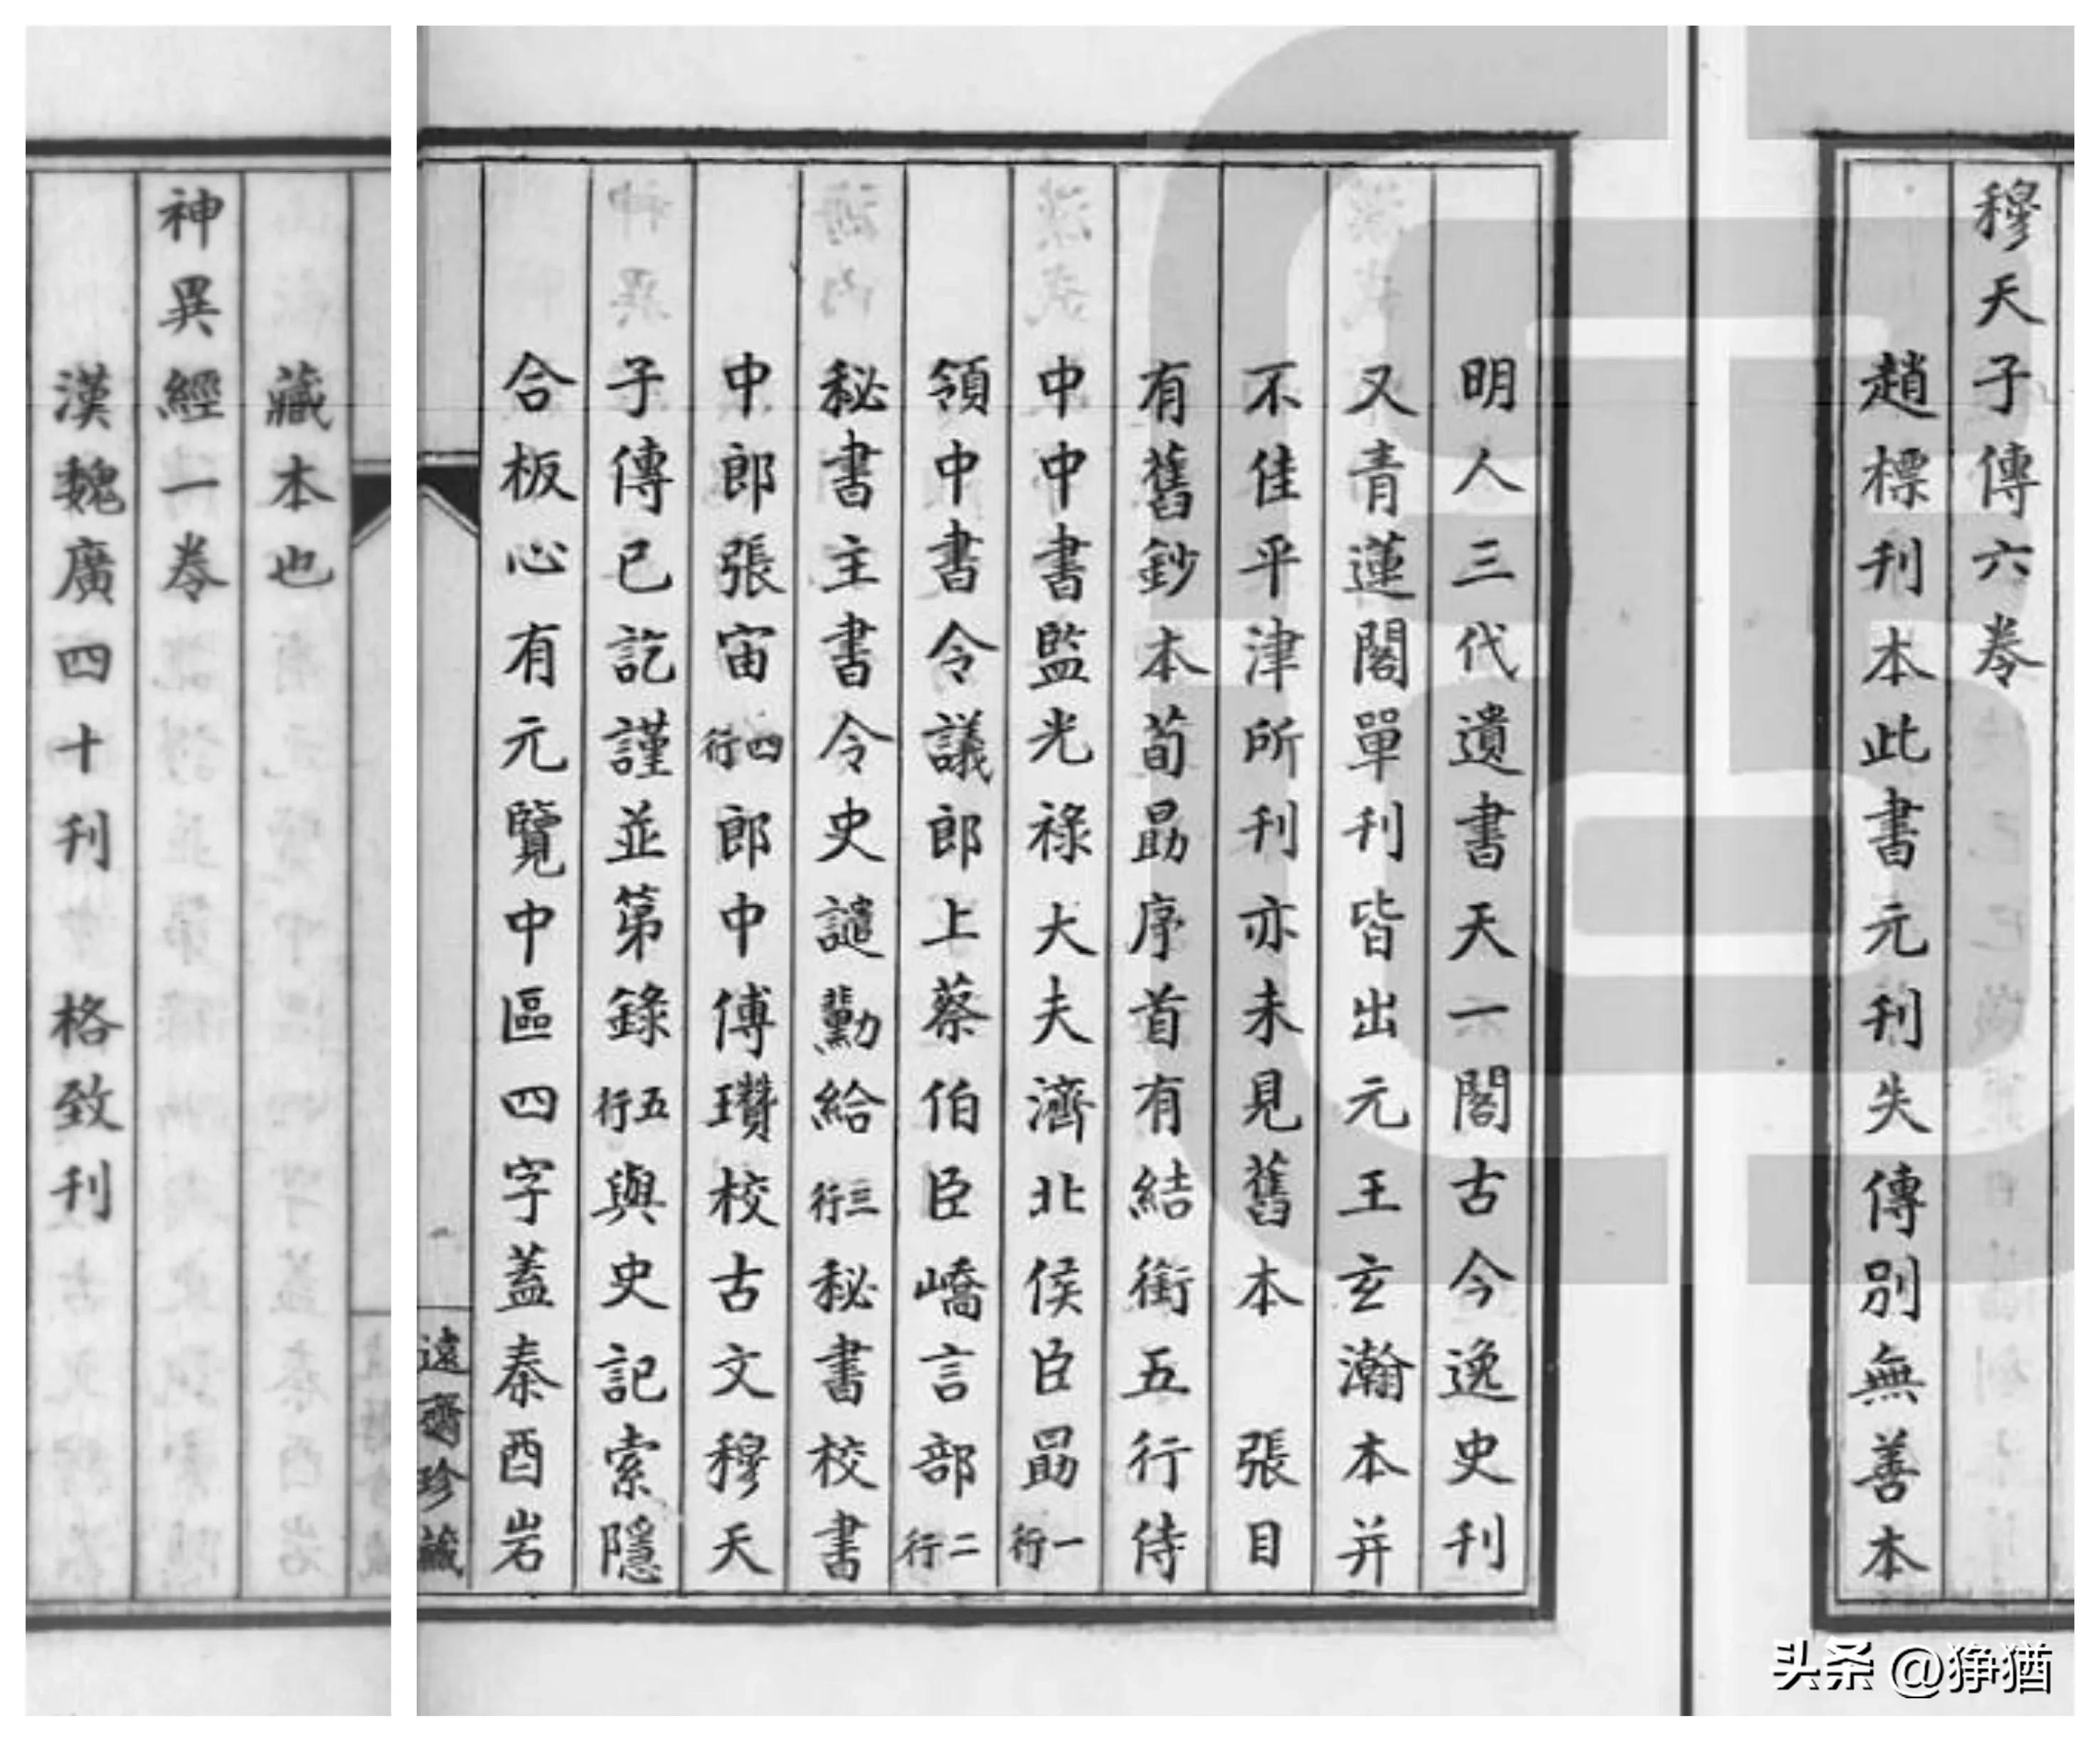 穆天子傳六卷
趙標刊本此書元刊失傳別無善本
明人三代遺書天一閣古今逸史刊
又青蓮閣單刊皆出元王玄瀚本并
不佳平津所刊亦未見舊本 張目
有舊鈔本荀勗序首有結銜五行侍
中中書監光祿大夫濟北侯臣勗一行
領中書令議郎上蔡伯臣嶠言部二行
秘書主書令史譴勳給三行秘書校書
中郎張宙四行郎中傅瓚校古文穆天
子傳已訖謹並第錄五行與史記索隱
合板心有元覽中區四字蓋秦酉岩
遠齋珍藏
藏本也
神異經一卷
漢魏廣四十刊 格致刊
头条 @狰猶